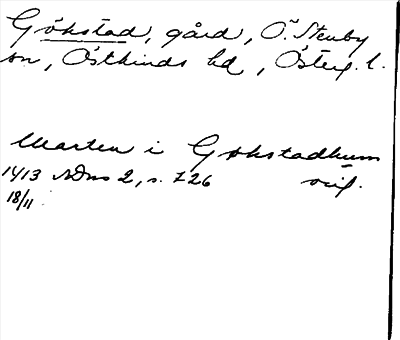 Gökstad, gård, Ö. Stenby
sn, Östkinds hd, Österg. l.
Marten i Gokstadhum
1413 SDns 2, s. 726 orig.
18/11